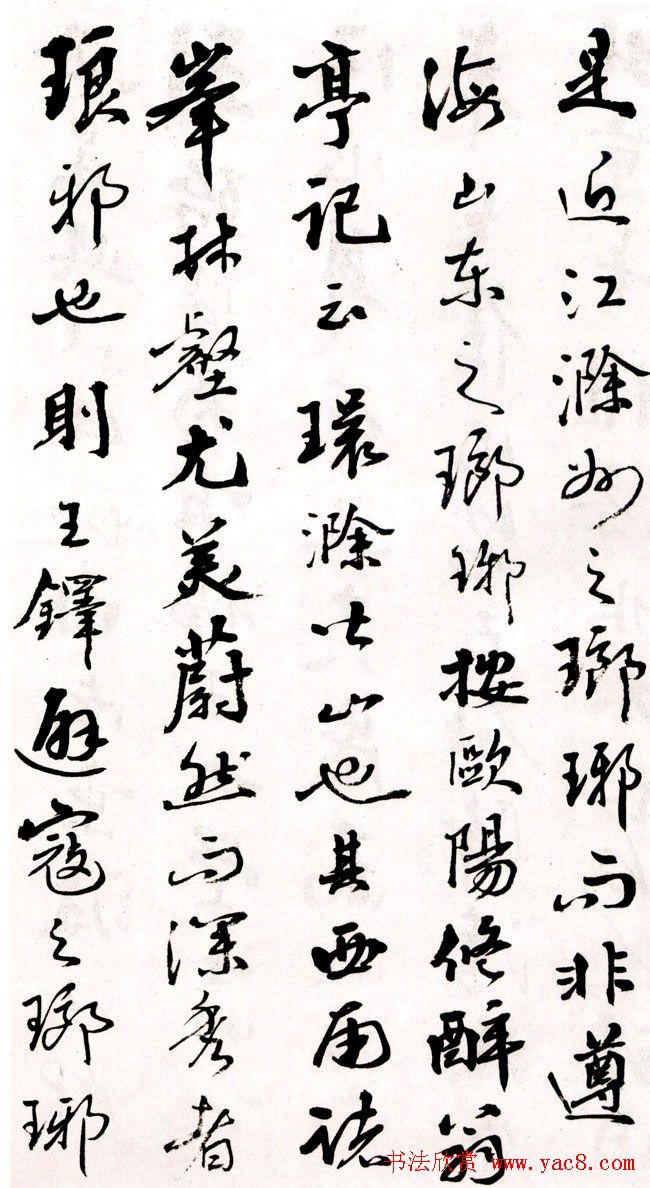 是近江滁州之瑯琊而非遵
海山东之瑯琊按歐陽修醉翁
亭记云環滁皆山也其西南诸
峯林壑尤美蔚然而深秀者
琅邪也則王鐸避寇之瑯琊
书法欣赏 www.yac8.com